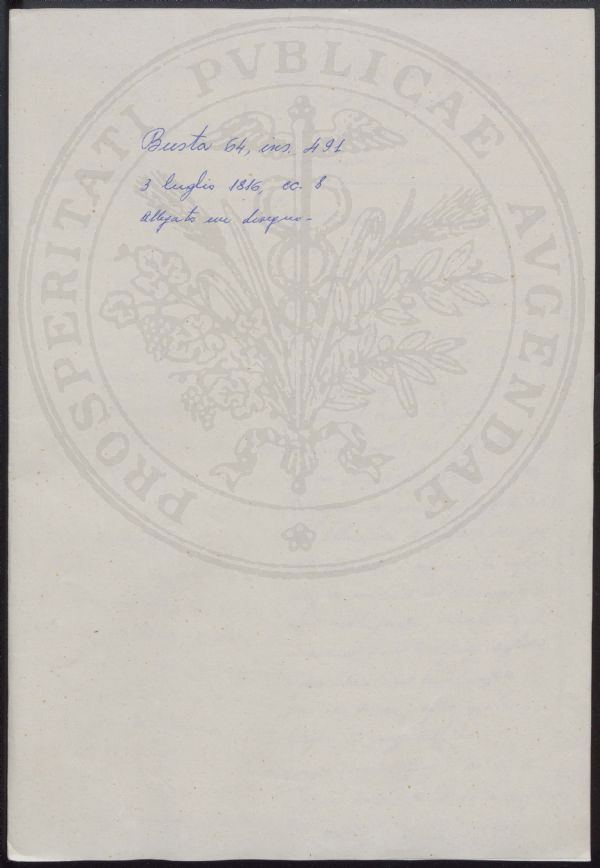 Busta 64, ins. 491
3 luglio 1816, cc. 8
Allegato un disegno -
PROSPERITATI PVBLICAE AVGENDAE